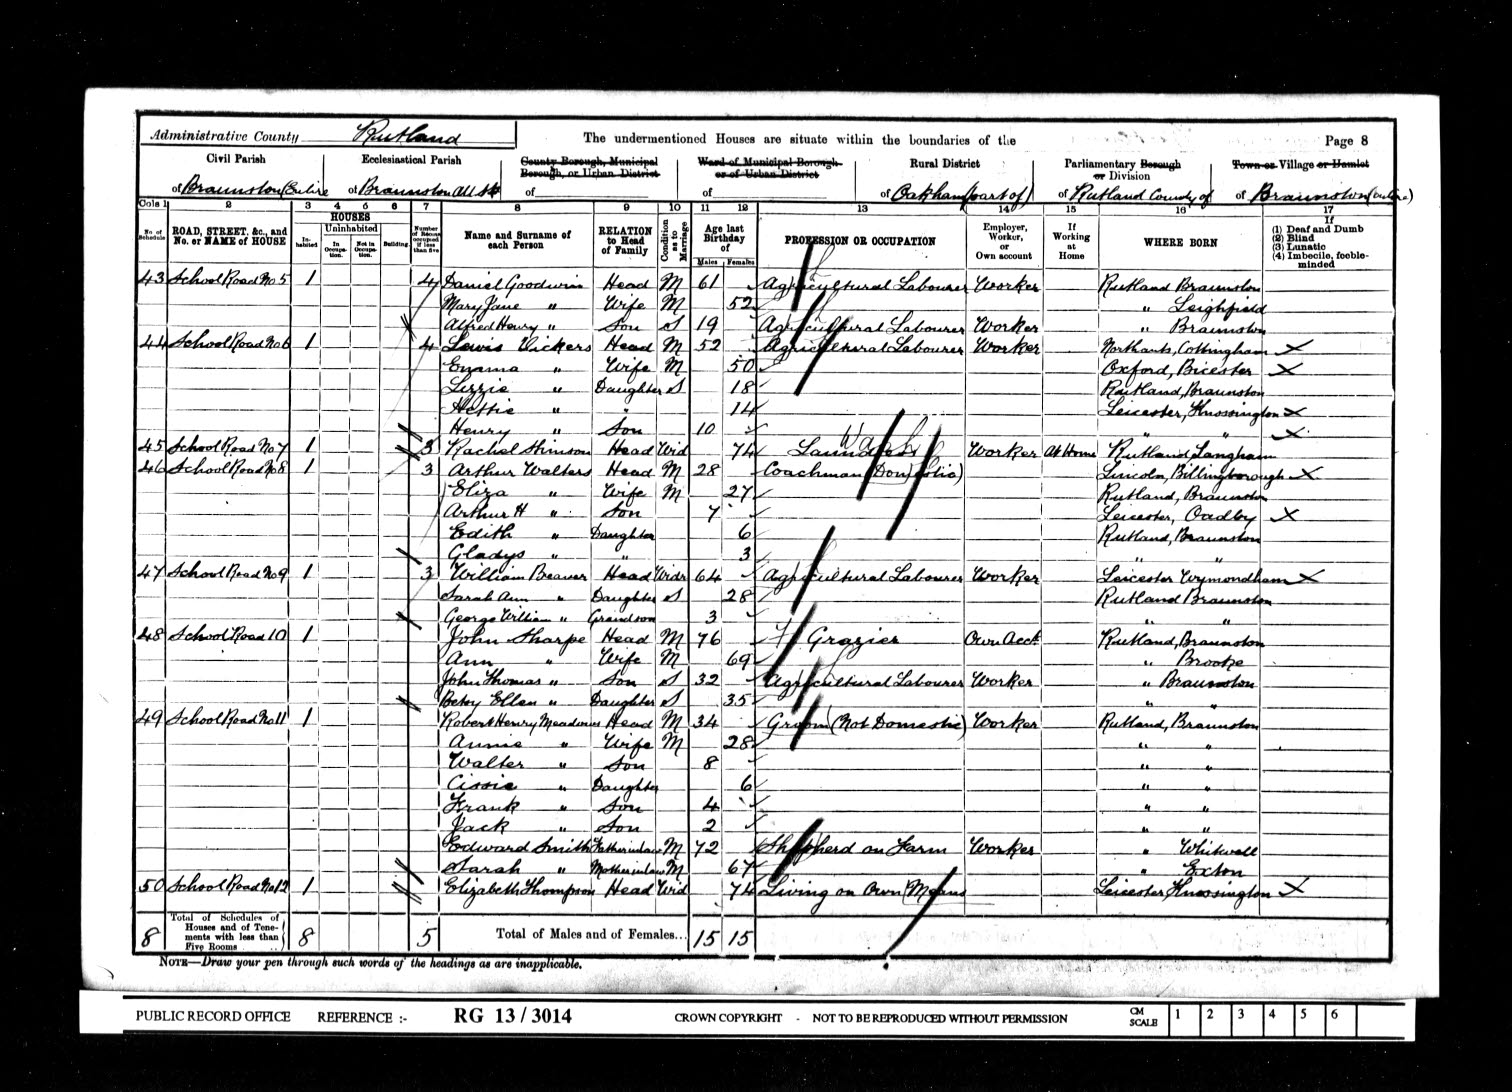 Administrative County Rutland
The undermentioned Houses are situate within the boundaries of the
Page 8
Civil Parish
of Braunston (Entire
Ecclesiastical Parish
of Braunston All Sts
County Borough, Municipal Borough, or Urban District
of
Ward of Municipal Borough or of Urban District
of
Rural District
of Oakham (part of)
Parliamentary Borough or Division
of Rutland County of
Town or Village or Hamlet
of Braunston (entire)
Cols 1 2 3 4 5 6 7 8 9 10 11 12 13 14 15 16 17
No. of Schedule
ROAD, STREET, &c., and No. or NAME of HOUSE
HOUSES
Inhabited
Uninhabited
In Occupation.
Not in Occupation.
Building
Number of Rooms occupied if less than five
Name and Surname of each Person
RELATION to Head of Family
Condition as to Marriage
Age last Birthday of
Males Females
PROFESSION OR OCCUPATION
Employer, Worker, or Own account
If Working at Home
WHERE BORN
If
(1) Deaf and Dumb
(2) Blind
(3) Lunatic
(4) Imbecile, feeble-minded
43 School Road No 5 1 4 Daniel Goodwin Head M 61 Agricultural Labourer Worker Rutland Braunston
Mary Jane " Wife M 52 " Leighfield
Alfred Henry " Son S 19 Agricultural Labourer Worker " Braunston
44 School Road No 6 1 4 Lewis Vickers Head M 52 Agricultural Labourer Worker Northants, Cottingham X
Emma " Wife M 50 Oxford, Bicester X
Lizzie " Daughter S 18 Rutland, Braunston
Hettie " " 14 Leicester, Knossington X
Henry " Son 10 " " X
Wash
45 School Road No 7 1 3 Rachel Stimson Head Wid 74 Laundress Worker At Home Rutland Langham
46 School Road No 8 1 3 Arthur Walters Head M 28 Coachman (Domestic) Lincoln, Billingborough X
Eliza " Wife M 27 Rutland, Braunston
Arthur H " Son 7 Leicester, Oadby X
Edith " Daughter 6 Rutland, Braunston
Gladys " " 3 " "
47 School Road No 9 1 3 William Beaver Head Widr 64 Agricultural Labourer Worker Leicester Wymondham X
Sarah Ann " Daughter S 28 Rutland Braunston
George William " Grandson 3 " "
48 School Road 10 1 John Sharpe Head M 76 Grazier Own Acct Rutland, Braunston
Ann " Wife M 69 " Brooke
John Thomas " Son S 32 Agricultural Labourer Worker " Braunston
Betsy Ellen " Daughter S 35 " "
49 School Road No 11 1 Robert Henry Meadows Head M 34 Groom (Not Domestic) Worker Rutland, Braunston
Annie " Wife M 28 " "
Walter " Son 8 " "
Cissie " Daughter 6 " "
Frank " Son 4 " "
Jack " Son 2 " "
Edward Smith Father in law M 72 Shepherd on Farm Worker " Whitwell
Sarah " Mother in law M 67 " Exton
50 School Road No 12 1 Elizabeth Thompson Head Wid 74 Living on Own Means Leicester Knossington X
8 Total of Schedules of Houses and of Tenements with less than Five Rooms 8 5 Total of Males and of Females... 15 15
NOTE—Draw your pen through such words of the headings as are inapplicable.
PUBLIC RECORD OFFICE REFERENCE :- RG 13 / 3014 CROWN COPYRIGHT - NOT TO BE REPRODUCED WITHOUT PERMISSION CM SCALE 1 2 3 4 5 6